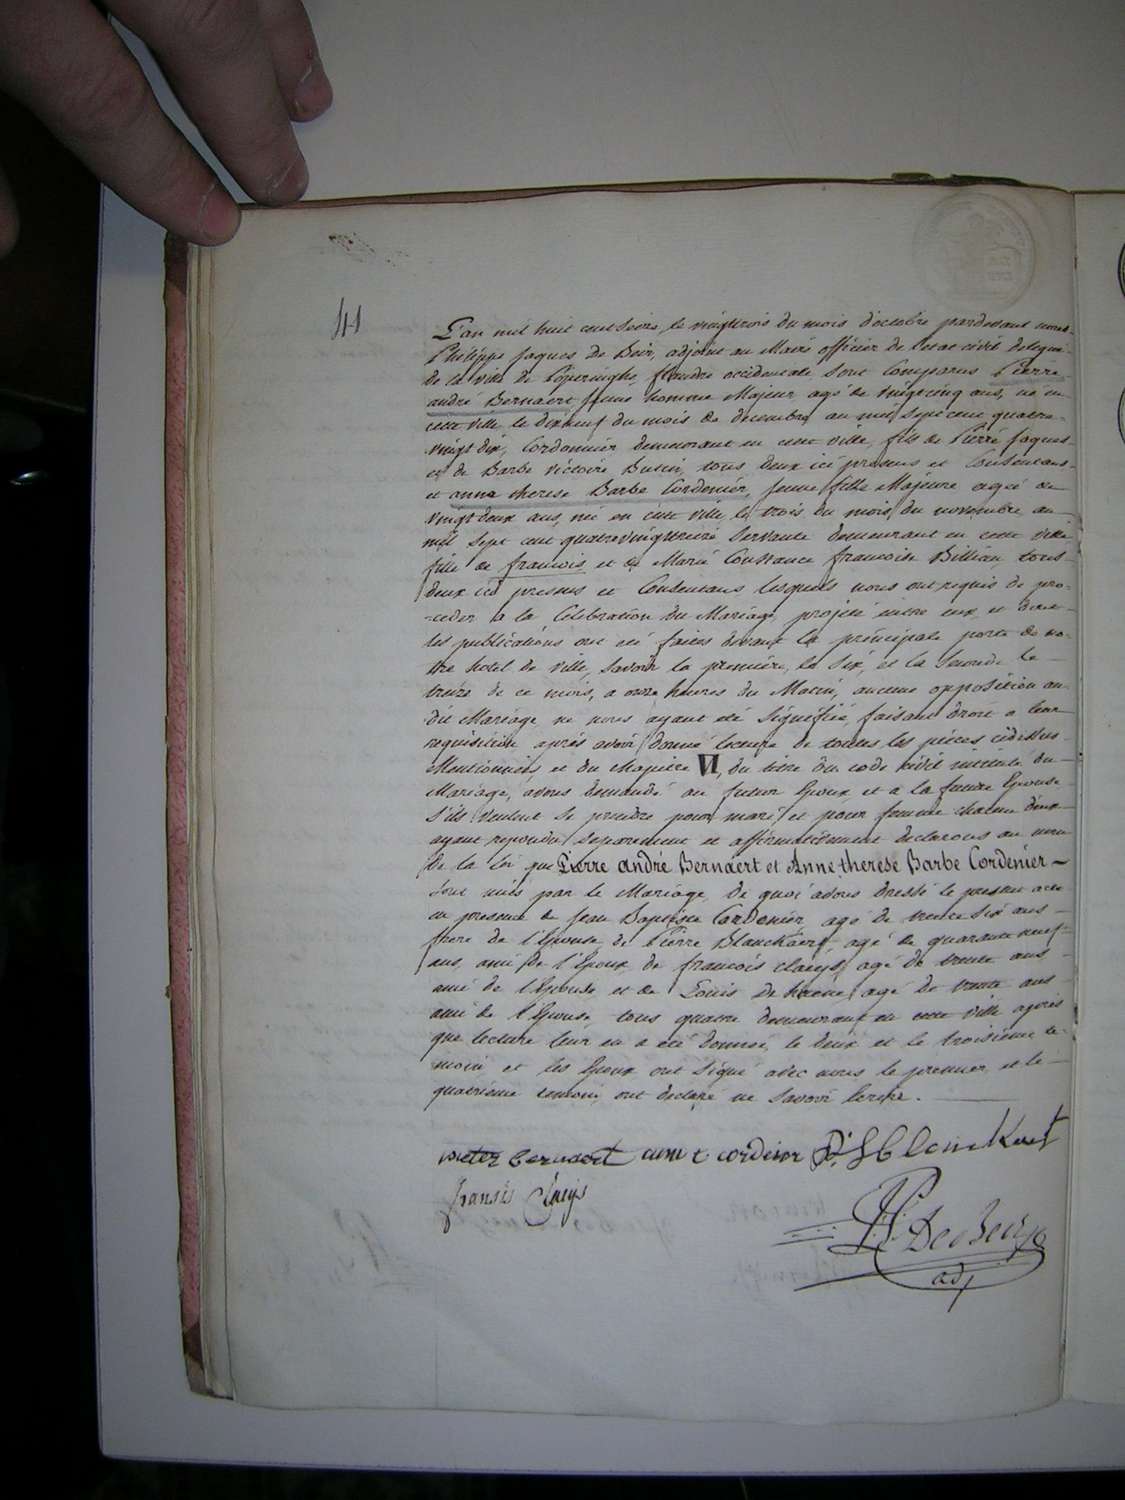 44
L'an mil huit cent seize, le vingttrois du mois d'octobre pardevant nous
Philippe Jaques de Beir, adjoint au Maire officier de l'etat civil delegué
de la ville de Poperinghe, flandre occidentale sont comparus Pierre
andré Bernaert jeune homme Majeur agé de vingtcinq ans, né en
cette ville le dixneuf du mois de decembre an mil sept cent quatre-
vingt dix, Cordonnier demeurant en cette ville, fils de Pierre Jaques
et de Barbe victoire Busin, tous deux ici presens et Consentans
et anne therese Barbe Cordenier, jeune fille Majeure agée de
vingt deux ans, née en cette ville le trois du mois du novembre an
mil sept cent quatrevingttreize Servante demeurant en cette ville
fille de francois et de Marie Constance francoise Billiau tous
deux ici presens et Consentans lesquels nous ont requis de pro-
-ceder a la Célébration du Mariage projeté entre eux et dont
les publications ont été faites devant la principale porte de no-
tre hotel de ville, savoir la premiere, le six, et la seconde le
treize de ce mois, a onze heures du Matin, aucune opposition au
dit Mariage ne nous ayant été signifiée, faisant droit a leur
requisition après avoir donné lecture de toutes les pièces cidessus
Mentionnées et du chapitre VI, du titre du code civil intitulé du
Mariage, avons demandé au futur Epoux et a la future Epouse
s'ils veulent se prendre pour mari et pour femme chacun d'eux
ayant repondu separement et affirmativement declarons au nom
de la loi que Pierre andré Bernaert et Anne therese Barbe Cordenier ~
sont unis par le Mariage, de quoi avons dressé le present acte
en presence de Jean Baptiste Cordenier agé de trente six ans
frere de l'Epouse, de Pierre Blanckaert, agé de quarante neuf
ans, ami de l'Epoux, de francois claeijs agé de trente ans
ami de l'Epouse et de Louis De haene agé de trente ans
ami de l'Epouse, tous quatre demeurant en cette ville après
que lecture leur en a été donnée, le deux et le troisieme te-
moin et les Epoux ont signé avec nous le premier et le
quatrieme temoin ont declaré ne savoir écrire.
pieter bernaert anne t cordenier P: J Blanckaert
fransis Claeijs
Ph: J: De Beir
adj